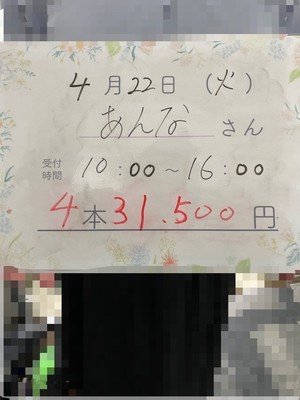 4月22日（火）
あんな さん
受付時間 10:00～16:00
4本31.500円